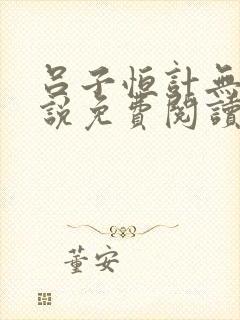 呂子恒計無
説免費閱讀
董安